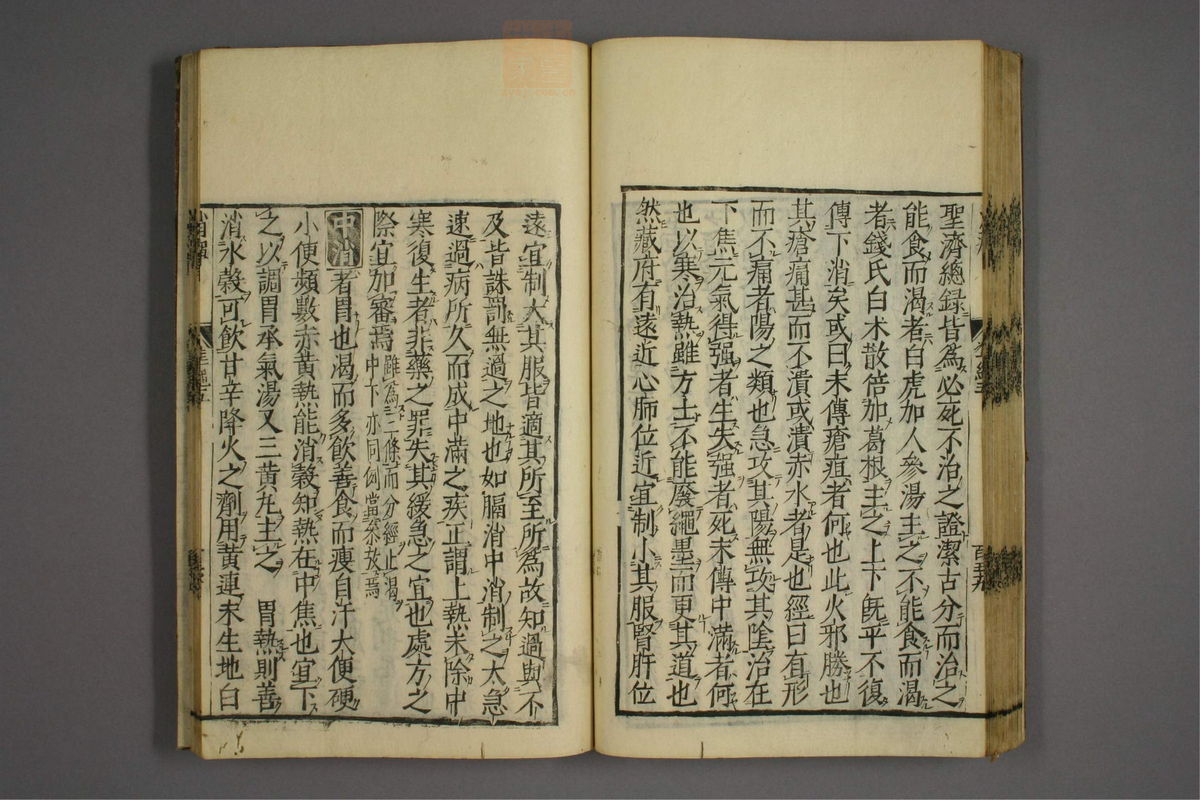 聖濟總録皆為必死不治之證潔古分而治之
能食而渴者白虎加人參湯主之不能食而渴
者錢氏白术散倍加葛根主之上下既平不復
傳下消矣或曰未傳瘡疽者何也此火邪勝也
其瘡痛甚而不潰或潰赤水者是也經曰有形
而不痛者陽之類也急攻其陽無攻其陰治在
下焦元氣得强者生失强者死未傳中滿者何
也以寒治熱雖方士不能廢繩墨而更其道也
然藏府有遠近心肺位近宜制小其服腎肝位
遠宜制大其服皆適其所至所為故知過與不
及皆誅罰無過之地也如膈消中消制之太急
速過病所久而成中滿之疾正謂上熱未除中
寒復生者非藥之罪失其緩急之宜也處方之
際宜加審焉雖為三條而分經止渴
中下亦同例當叅放焉
中消者胃也渴而多飲善食而瘦自汗大便硬
小便頻數赤黄熱能消穀知熱在中焦也宜下
之以調胃承氣湯又三黄丸主之 胃熱則善
消水穀可飲甘辛降火之劑用黄連末生地白
百五九